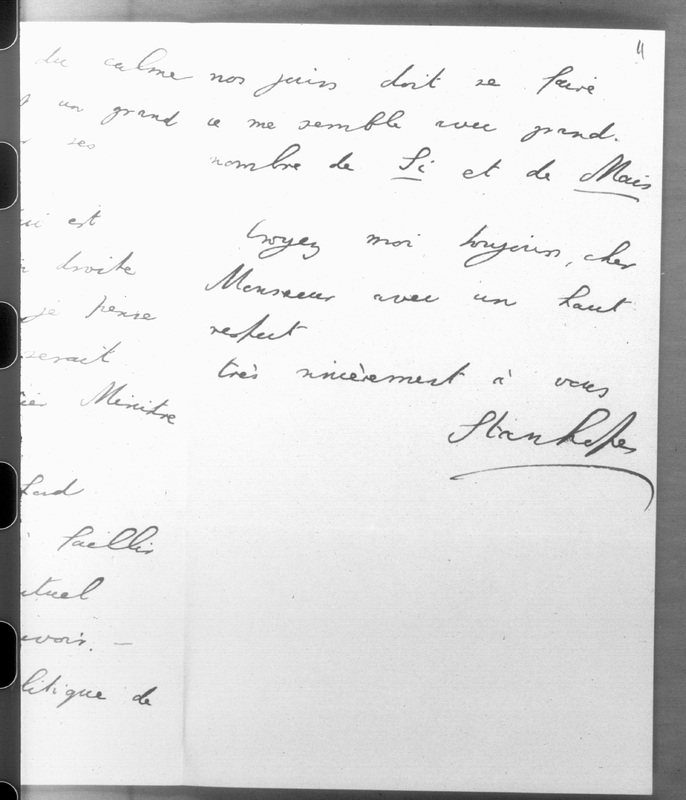 4
du calme
un grand
ses
est
droite
je pense
serait
Ministre
faillir
avoir. —
litique de
nos jours doit se faire
ce me semble avec grand
nombre de Si et de Mais
Croyez moi toujours, cher
Monsieur avec un haut
respect
très sincèrement à vous
Stanhope